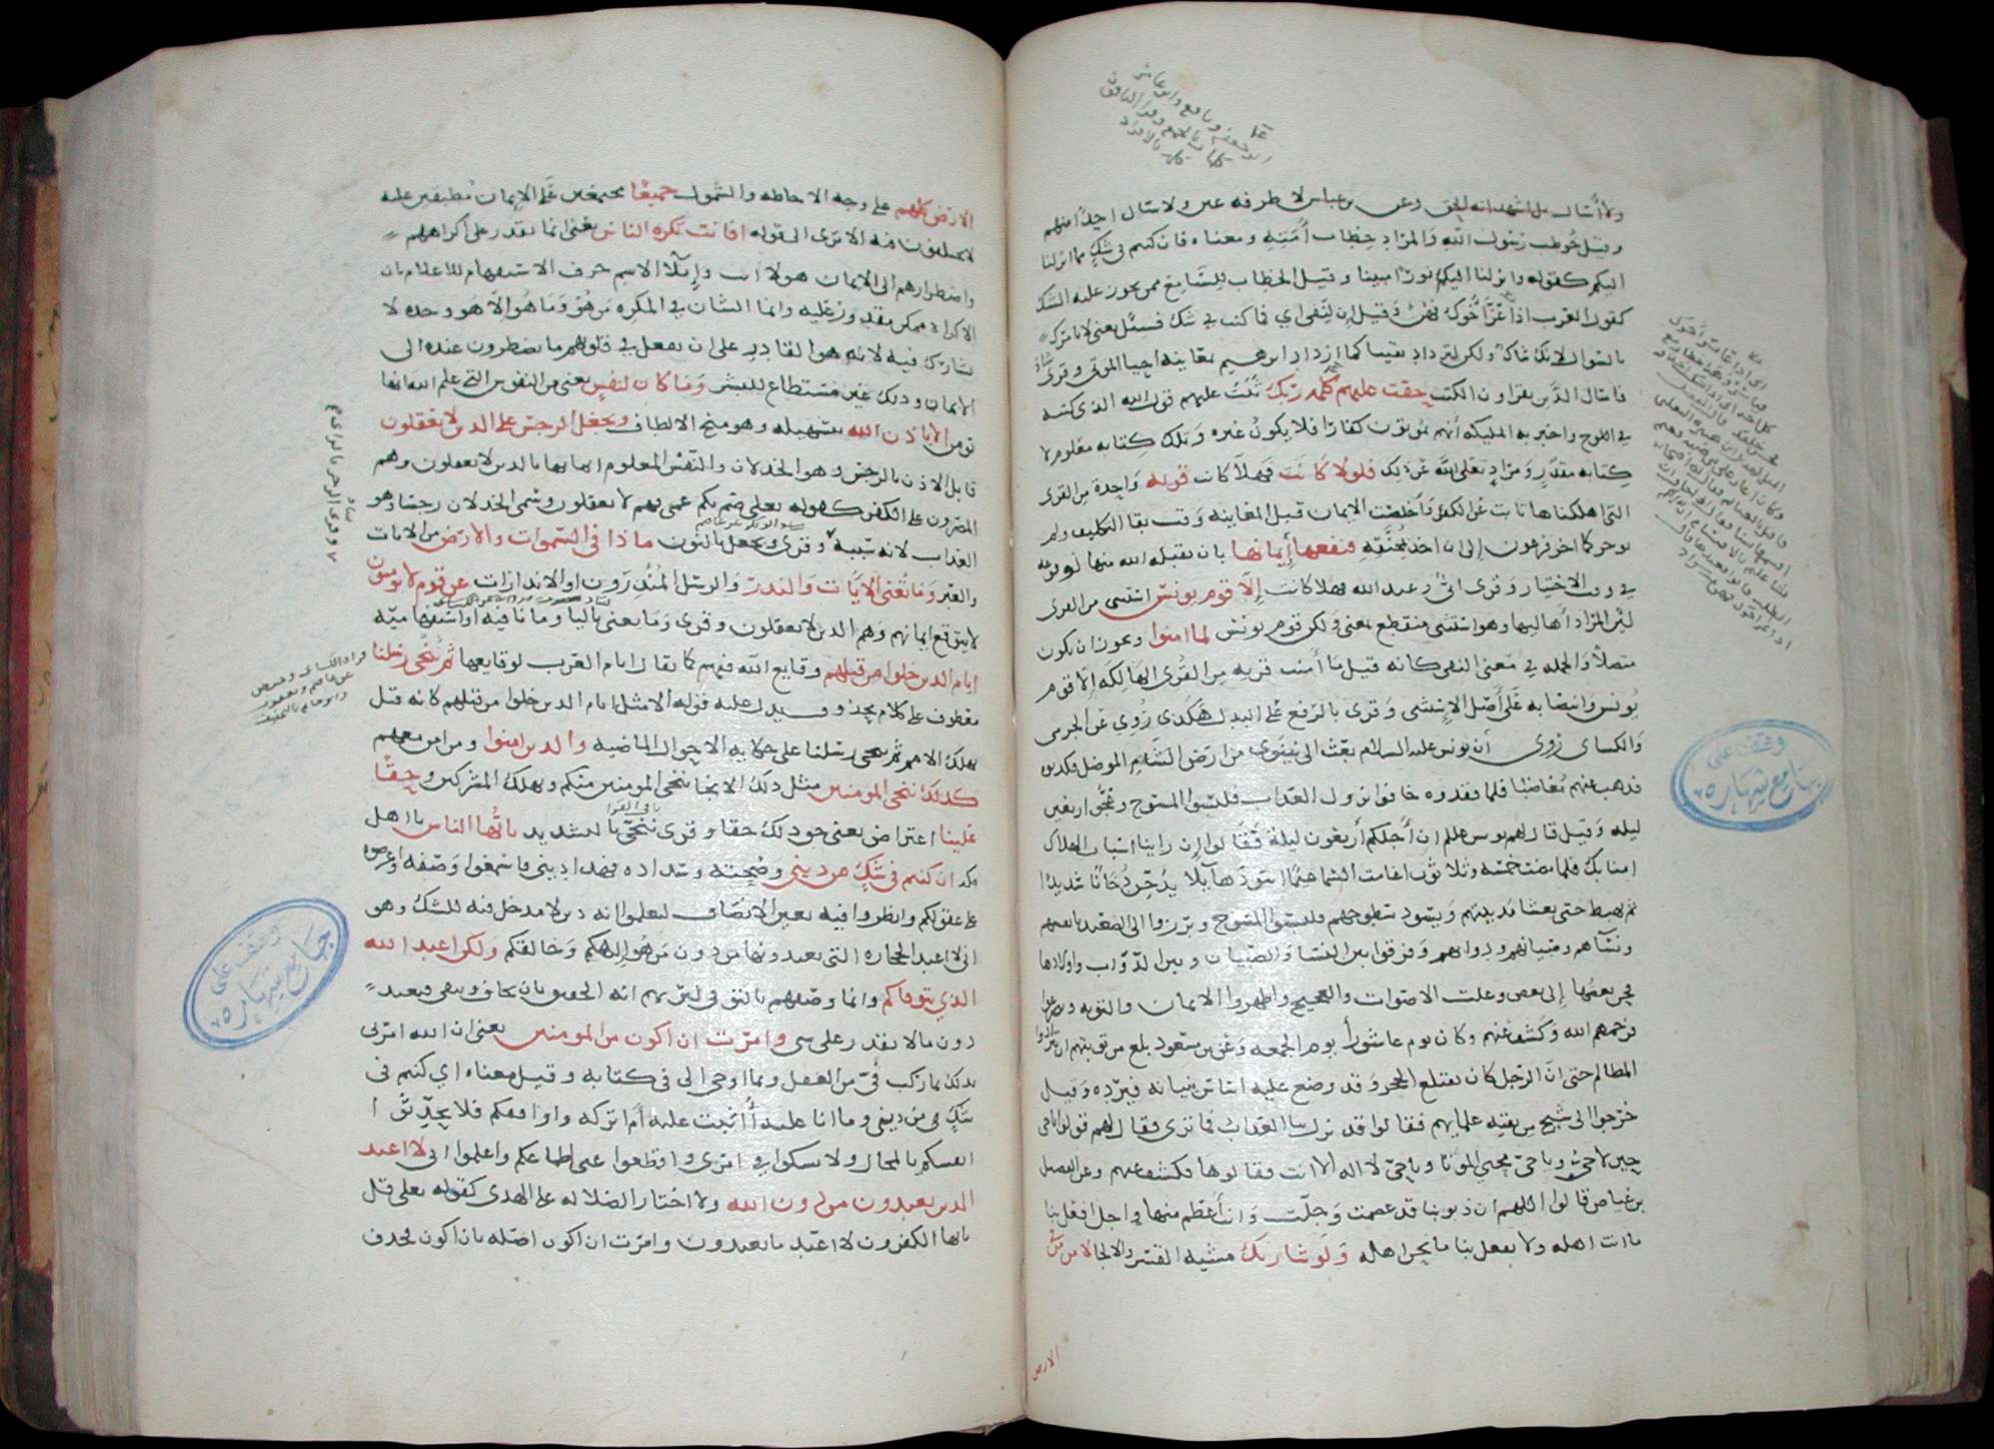 ولا أسال بل اشهد انه الحق وعن بن عباس لا طرفة عين ولا سال احدا منهم
وقيل خوطب رسول الله والمراد خطاب أمته ومعناه فان كنتم في شك مما انزلنا
اليكم كقوله وانزلنا اليكم نورا مبينا وقيل الخطاب للسامع ممن يجوز عليه الشك
كقول العرب اذا عز أخوك فهن وقيل ان للنفي اي فما كنت في شك فسئل يعني لا نامرك
بالسوال لانك شاك ولكن لتزداد يقينا كما ازداد ابرهيم بمعاينة احيا الموتى وقرى
فاسال الذين يقراون الكتب حقت عليهم كلمه ربك ثبت عليهم قول الله الذي كتبه
في اللوح واخبر به المليكه أنهم يموتون كفارا فلا يكون غيره وتلك كتابه معلوم لا
كتابه مقدر ومراد تعلى الله عن ذلك فلولا كانت فهلا كانت قريه واحدة من القرى
التي اهلكناها تابت عن الكفر وأخلصت الايمان قبل المعاينه وقت بقا التكليف ولم
توخر كما اخر فرعون إلى ان اخذ بمخنقه فنفعها إيمانها بان يقبله الله منها لوقوعه
في وقت الاختيار وقرى ابي وعبد الله فهلا كانت إلا قوم يونس استثنى من القرى
لان المراد أهاليها وهو استثنى منقطع بمعنى ولكن قوم يونس لما امنوا ويجوز ان يكون
متصلا والجمله في معنى النفي كانه قيل ما أمنت قريه من القرى الهالكه الا قوم
يونس وانتصابه على أصل الاستثنى وقرى بالرفع على البدل هكذى روي عن الجرمي
والكساى روى أن يونس عليه السلام بعث الى نينوى من ارض الشام الموصل فكذبوه
فذهب عنهم مغاضبا فلما فقدوه خافوا نزول العذاب فلبسوا المسوح وعجوا اربعين
ليله وقيل قال لهم يونس عللم ان أجلكم أربعون ليلة فقالوا إن راينا اسباب الهلاك
امنا بك فلما مضت خمسه وثلاثون اغامت السما غيما اسود هآيلا يدخن دخانا شديدا
ثم يهبط حتى يغشا مدينتهم ويسود سطوحهم فلبسوا المسوح وبرزوا الى الصعيد بانفسهم
ونسآهم وصبيانهم ودوابهم وفرقوا بين النسا والصبيان وبين الدواب واولادها
فحن بعضها إلى بعض وعلت الاصوات والعجيج واظهروا الايمان والتوبه وتضرعوا
فرحمهم الله وكشف عنهم وكان يوم عاشورأ يوم الجمعه وعن بن مسعود بلغ من توبتهم ان يترادوا
المظالم حتى ان الرجل كان يقتلع الحجر وقد وضع عليه اساس بنيانه فيرده وقيل
خرجوا الى شيخ من بقيه علمايهم فقالوا قد نزل بنا العذاب فما ترى فقال لهم قولوا يا حي
حين لا حي ويا حي محيي الموتا ويا حي لا اله الا انت فقالوها فكشف عنهم وعن الفضيل
بن عياض قالوا اللهم ان ذنوبنا قد عظمت وجلت وانت أعظم منها واجل افعل بنا
ما انت اهله ولا تفعل بنا ما نحن اهله ولو شا ربك مشيه القسر والالجا لامن من في
الارض
وقف على
جامع شهاره
الارض كلهم على وجه الاحاطه والشمول جميعا مجتمعين على الايمان مطبقين عليه
لا يختلفون فيه الا ترى الى قوله افانت تكره الناس يعني انما يقدر على اكراههم
واضطرارهم الى الايمان هو لا انت وإيلآ الاسم حرف الاستفهام للاعلام بان
الاكراه ممكن مقدور عليه وانما الشان في المكره من هو وما هو الا هو وحده لا
يشارك فيه لانه هو القادر على ان يفعل في قلوبهم ما يضطرون عنده الى
الايمان وذلك غير مستطاع للبشر وما كان لنفس يعني من النفوس التي علم الله انها
تومن الا باذن الله بتسهيله وهو منح الالطاف ويجعل الرجس على الدين لا يعقلون
قابل الاذن بالرجس وهو الخدلان والنفس المعلوم ايمانها بالدين لا يعقلون وهم
المصرون على الكفر كقوله تعلى صم بكم عمي فهم لا يعقلون وسمى الخدلان رجسا وهو
العذاب لانه سببه وقرى ويجعل بالنون ماذا في السموات والارض من الايات
والعبر وما تغني الايات والندر والرسل المنذرون او الاندارات عن قوم لا يومنون
لا يتوقع ايمانهم وهم الدين لا يعقلون وقرى وما يغني باليا وما نافيه او استفهاميه
ايام الدين خلوا من قبلهم وقايع الله فيهم كما يقال ايام العرب لوقايعها ثم ننجي رسلنا
معطوف على كلام محذوف يدل عليه قوله الا مثل ايام الدين خلوا من قبلهم كانه قيل
نهلك الامم ثم ننجي رسلنا على حكايه الاحوال الماضيه والدين امنوا ومن امن معهم
كدلك ننجي المومنين مثل ذلك الانجا ننجي المومنين منكم ونهلك المشركين وحقا
علينا اعتراض يعني حق ذلك حقا وقرى ننجي بالتشديد يا أيها الناس يا اهل
مكه ان كنتم في شك من ديني وصحته وسداده فهذا ديني فاسمعوا وصفه واعرضوه
على عقولكم وانظروا فيه بعين الانصاف لتعلموا انه دين لا مدخل فيه للشك وهو
اني لا اعبد الحجاره التي تعبدونها من دون من هو إلهكم وخالقكم ولكن اعبد الله
الذي يتوفاكم وانما وصفه بالتوفي ليريهم انه الحقيق بان يخاف ويتقى فيعبد
دون ما لا يقدر على شي وامرت ان اكون من المومنين يعني ان الله امرني
بذلك بما ركب في من العقل وبما اوحى الي في كتابه وقيل معناه اي كنتم في
شك من ديني ومما انا عليه أأثبت عليه أم اتركه واوافقكم فلا تحدثوا
انفسكم بالمحال ولا تشكوا في امري واقطعوا عني اطماعكم واعلموا اني لا اعبد
الدين تعبدون من دون الله ولا اختار الضلاله على الهدى كقوله تعلى قل
يا ايها الكفرون لا اعبد ما تعبدون وامرت ان اكون اصله بان اكون فحذف
قراه الكساى وحفص
عن عاصم ويعقوب
بالتخفيف
باقي القرا
وقف على
جامع شهاره